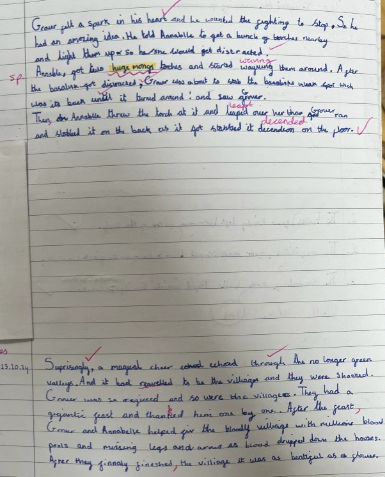 Grover felt a spark in his heart and he wanted the fighting to stop. So he
had an amazing idea. He told Annabelle to get a bunch of torches nearby
and light them up so he would get distracted.
waving
sp Annabelle, got four huge torches and stared them around. After
the basalisk got distracted, Grover was about to stab the basalisks weak spot wich
was its back until it turned around! and saw Grover.
leapt
Then Annabelle threw the torch at it and leaped over her than Grover ran
decended
and stabbed it on the back as it got stabbed it decendeon on the floor.
13.10.24
Suprisingly, a magical cheer echoed through the no longer green
valleys. And it had to be the villaigs and they were shocked.
Grover was so and so were the villages. They had a
gigantic feast and thanked him one by one. After the feast,
Grover and Annabelle helped the bloody villaige with millions blood
pools and missing legs and arms as blood dripped down the houses.
After they finnaly gineshed, the villaige it was as beatigul as a glower.